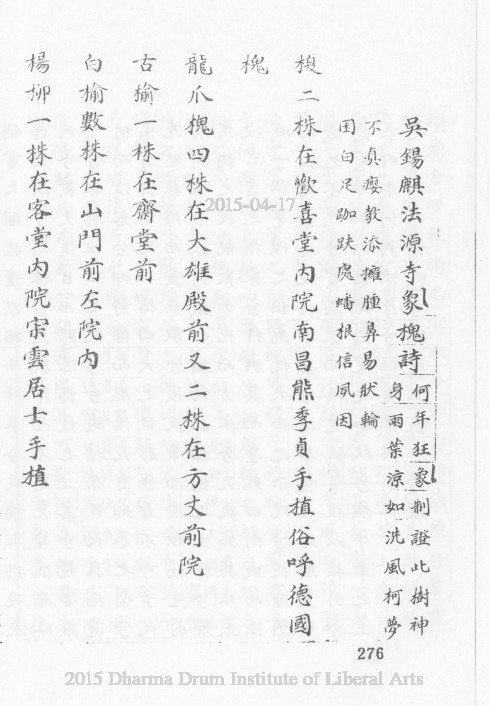 吳錫麒法源寺象槐詩何年狂象制證此樹神
身雨葉涼如洗風柯夢
不貞癭教添擁腫鼻易狀輪
囷白足跏趺處蟠根信夙因
槐
二株在歡喜堂內院南昌熊季貞手植俗呼德國
槐
龍爪槐四株在大雄殿前又二株在方丈前院
古榆一株在齋堂前
白榆數株在山門前左院內
楊柳一株在客堂內院宗雲居士手植
2015-04-17
276
2015 Dharma Drum Institute of Liberal Arts